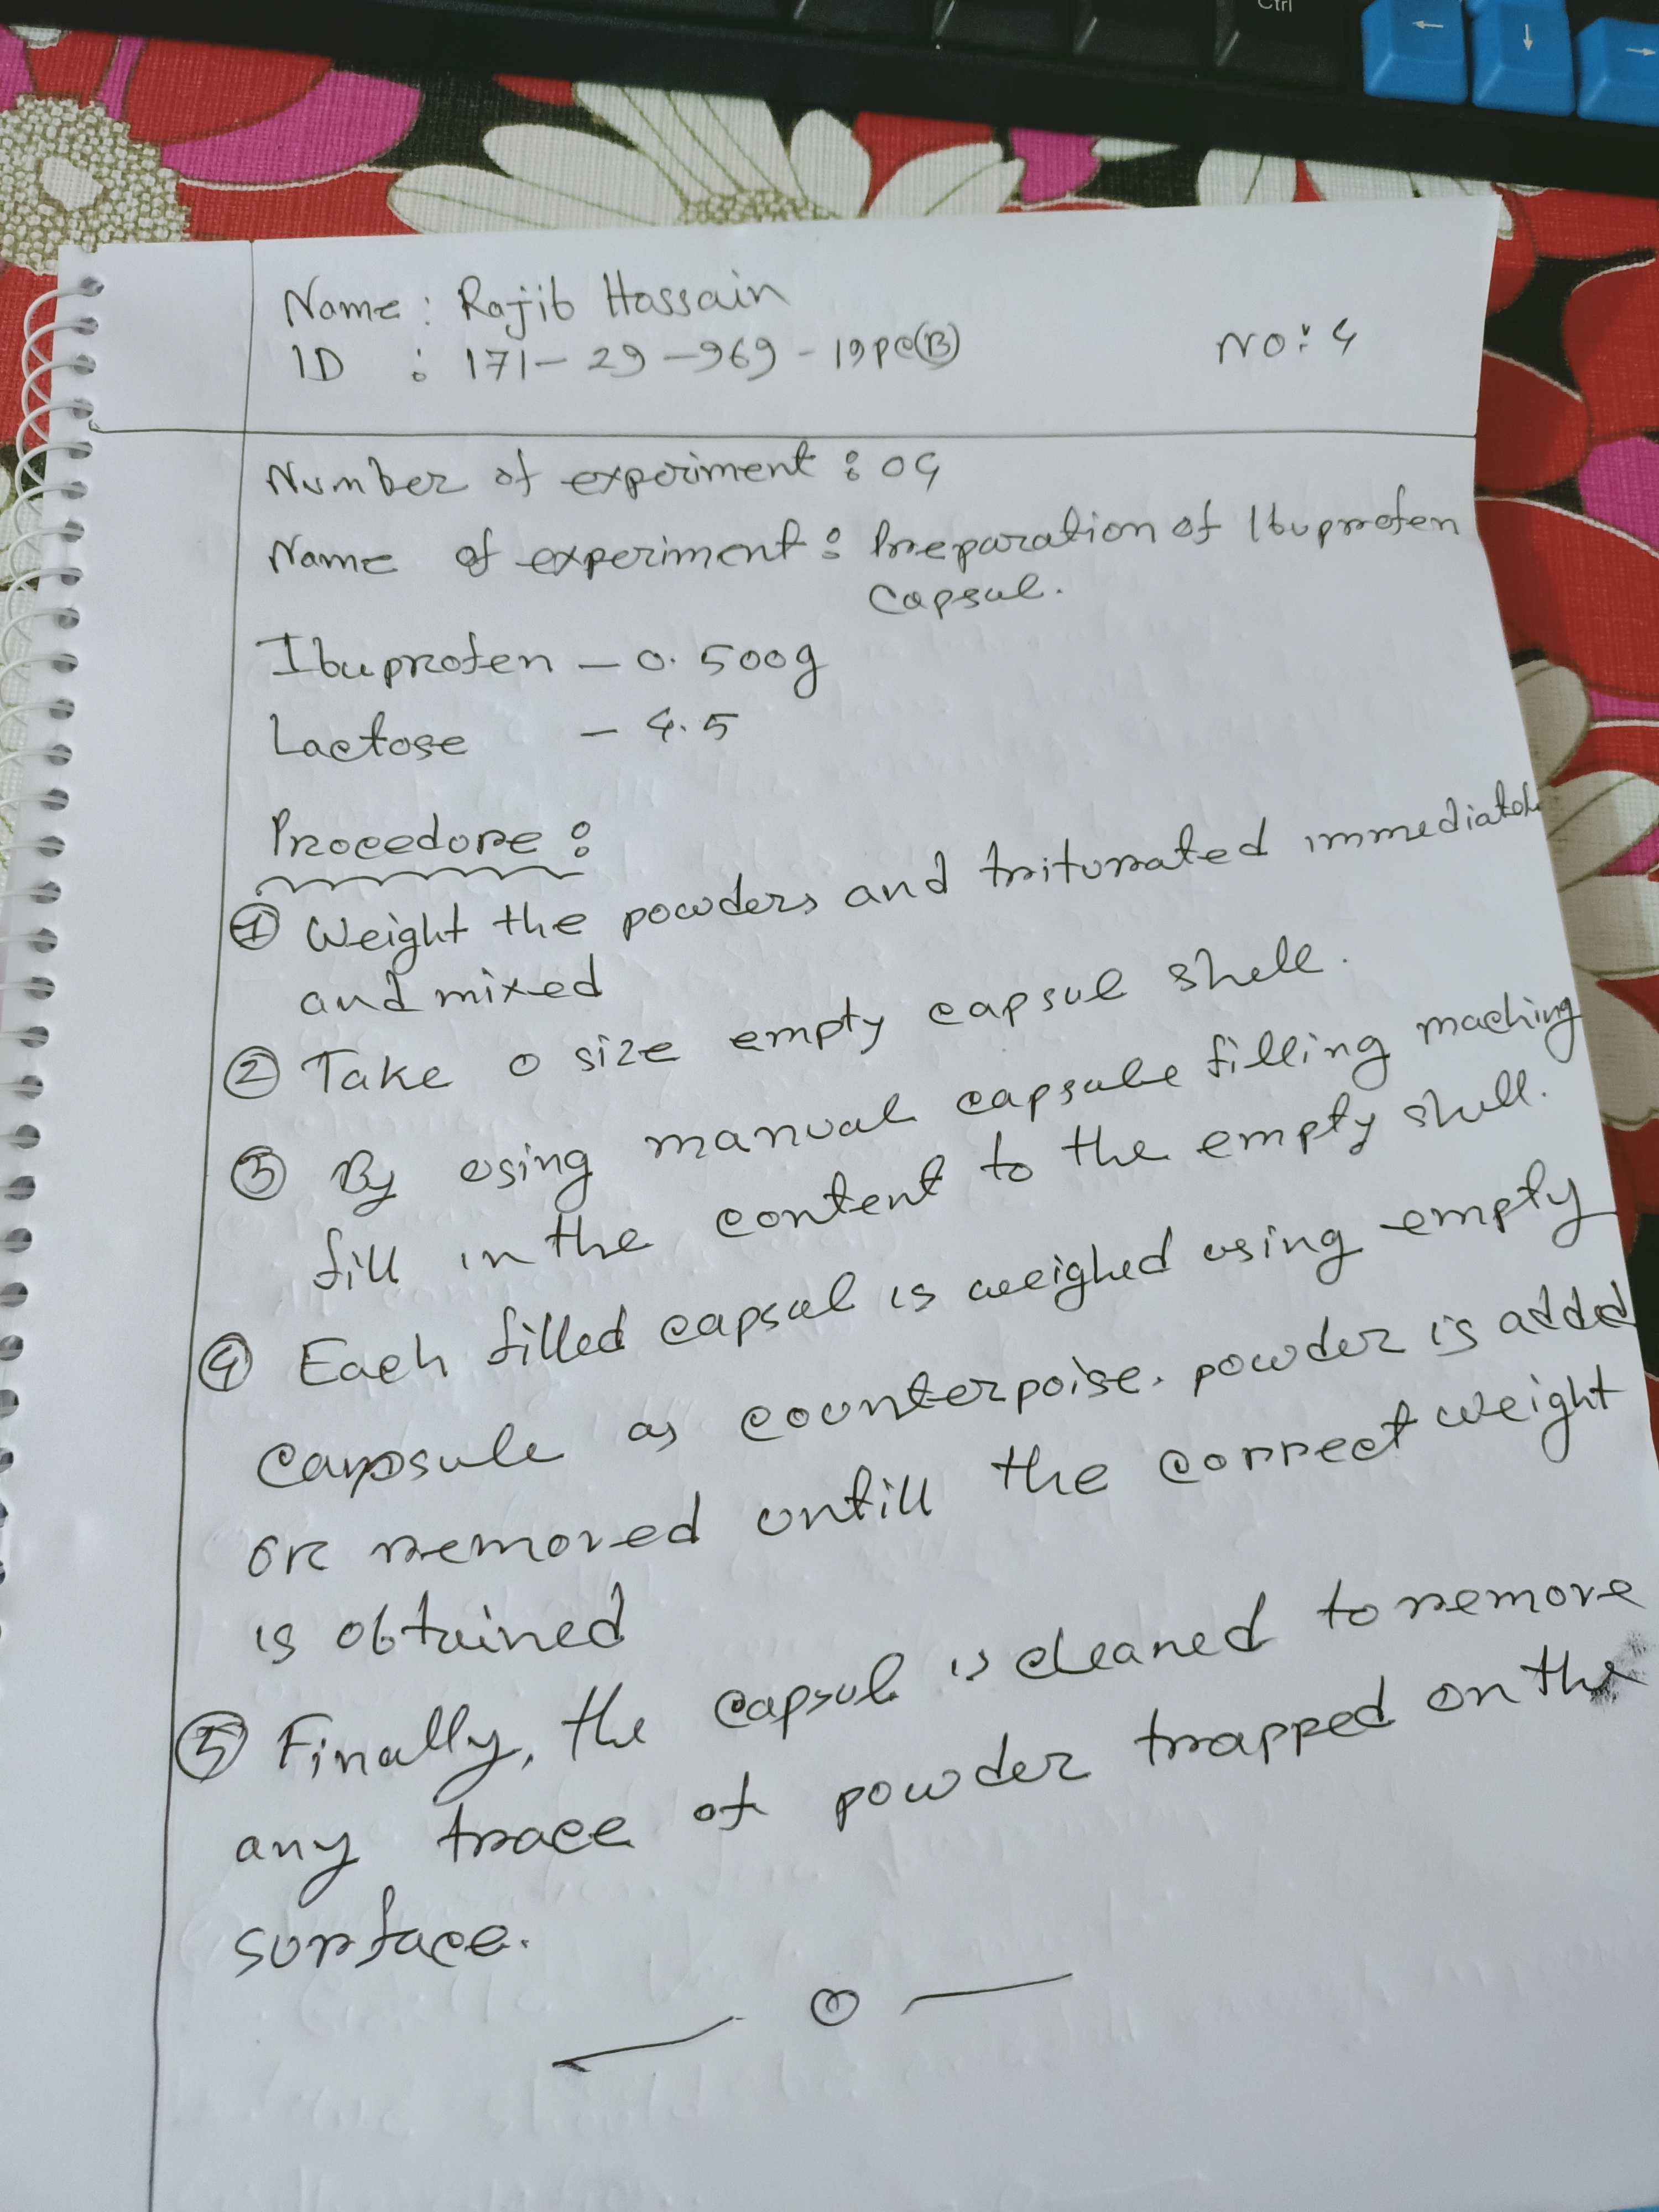 Ctrl
←
↓
→
Name : Rajib Hossain
ID : 171-29-969-19pc(B)
NO: 4
Number of experiment : 04
Name of experiment : Preparation of Ibuprofen
Capsul.
Ibuprofen - 0.500g
Lactose - 4.5
Procedore :
① Weight the powders and triturated immediately
and mixed
② Take 0 size empty capsul shell.
③ By using manual capsule filling maching
fill in the content to the empty shell.
④ Each filled capsul is weighed using empty
capsule as counterpoise. powder is added
or removed untill the correct weight
is obtained
⑤ Finally, the capsul is cleaned to remove
any trace of powder trapped on the
surface.